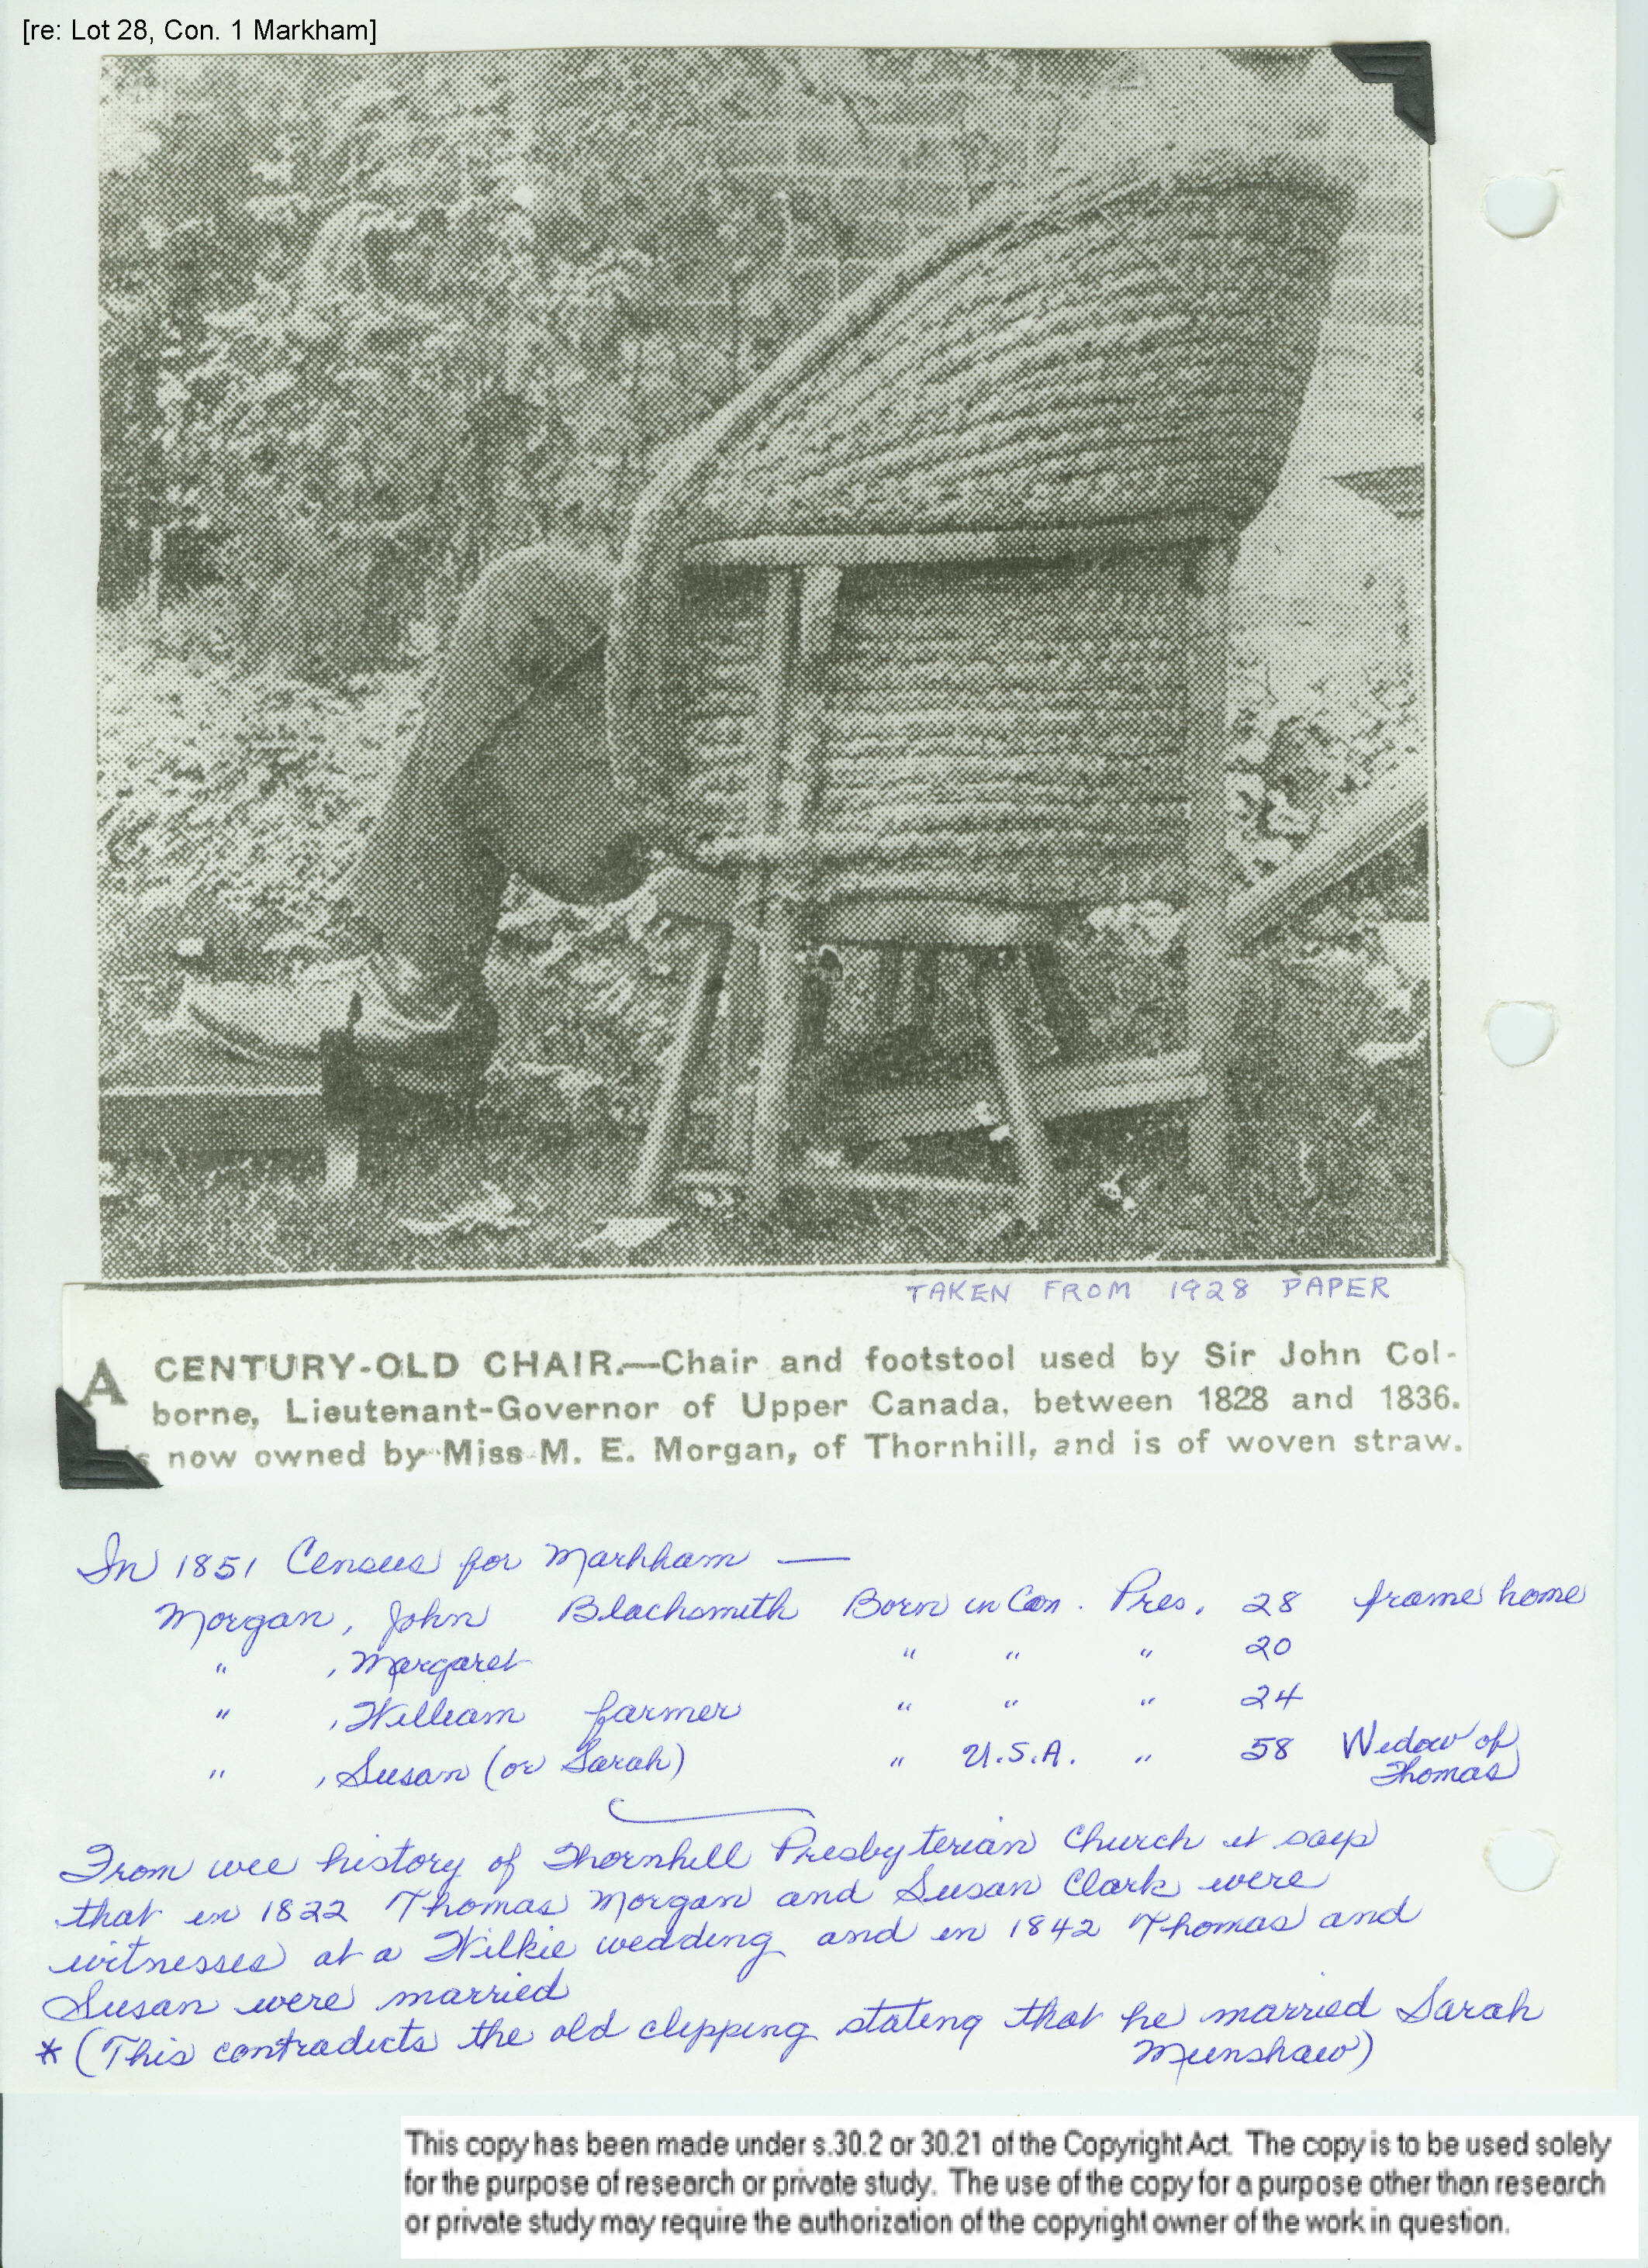 [re: Lot 28, Con. 1 Markham]
TAKEN FROM 1928 PAPER
A CENTURY-OLD CHAIR.—Chair and footstool used by Sir John Col-
borne, Lieutenant-Governor of Upper Canada, between 1828 and 1836.
s now owned by Miss M. E. Morgan, of Thornhill, and is of woven straw.
In 1851 Census for Markham —
Morgan, John Blacksmith Born in Can. Pres. 28 frame home
" , Margaret " " " 20
" , William farmer " " " 24
" , Susan (or Sarah) " U.S.A. " 58 Widow of
Thomas
From wee history of Thornhill Presbyterian Church it says
that in 1822 Thomas Morgan and Susan Clark were
witnesses at a Wilkie wedding and in 1842 Thomas and
Susan were married
* (This contradicts the old clipping stating that he married Sarah
Munshaw)
This copy has been made under s.30.2 or 30.21 of the Copyright Act. The copy is to be used solely
for the purpose of research or private study. The use of the copy for a purpose other than research
or private study may require the authorization of the copyright owner of the work in question.